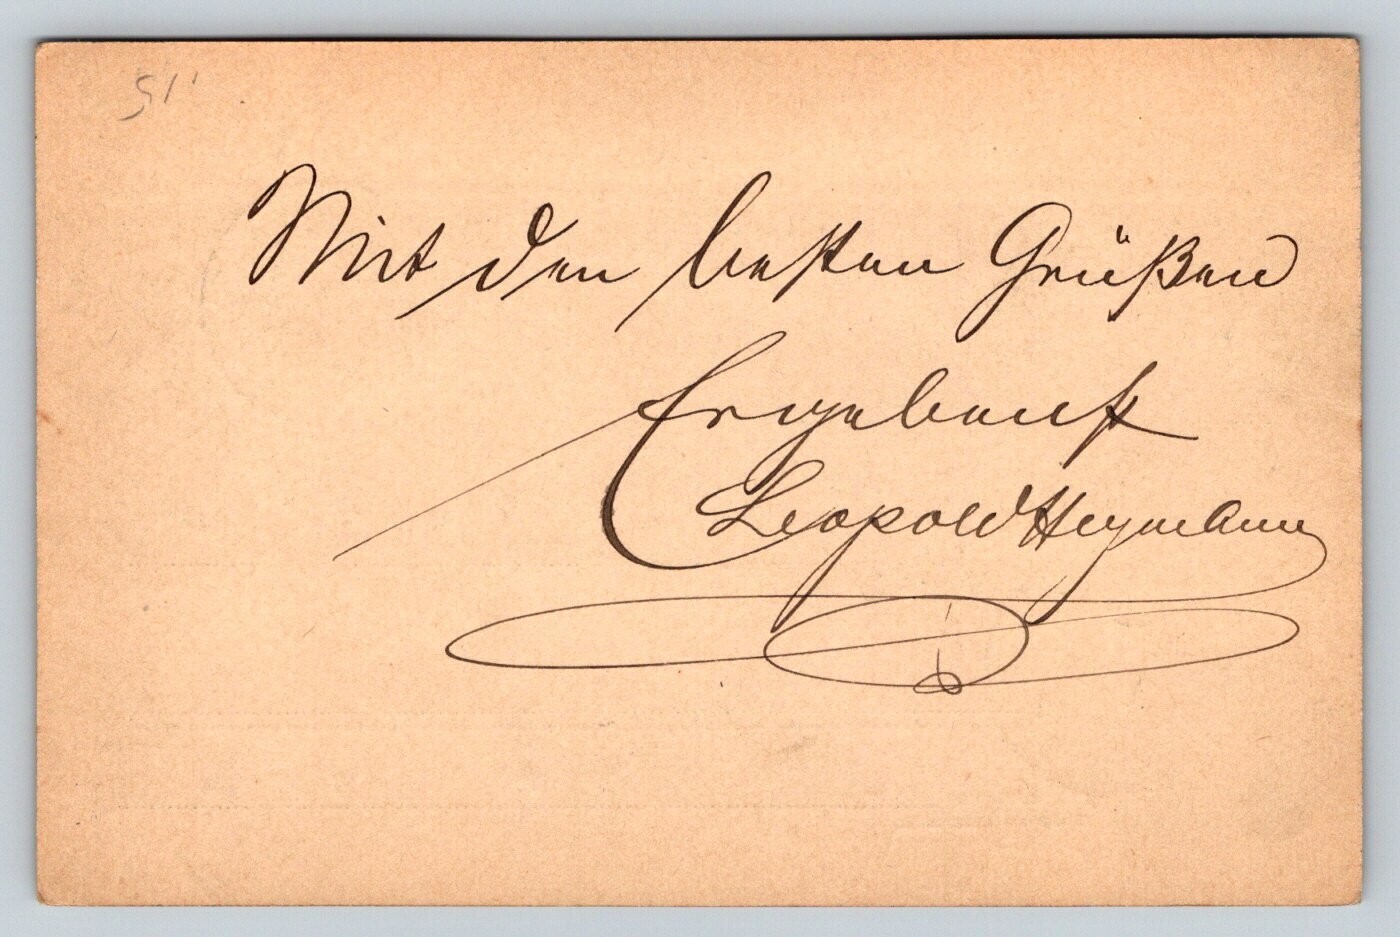 51'
Mit den besten Grüßen
Ergebenst
Leopold Heymann